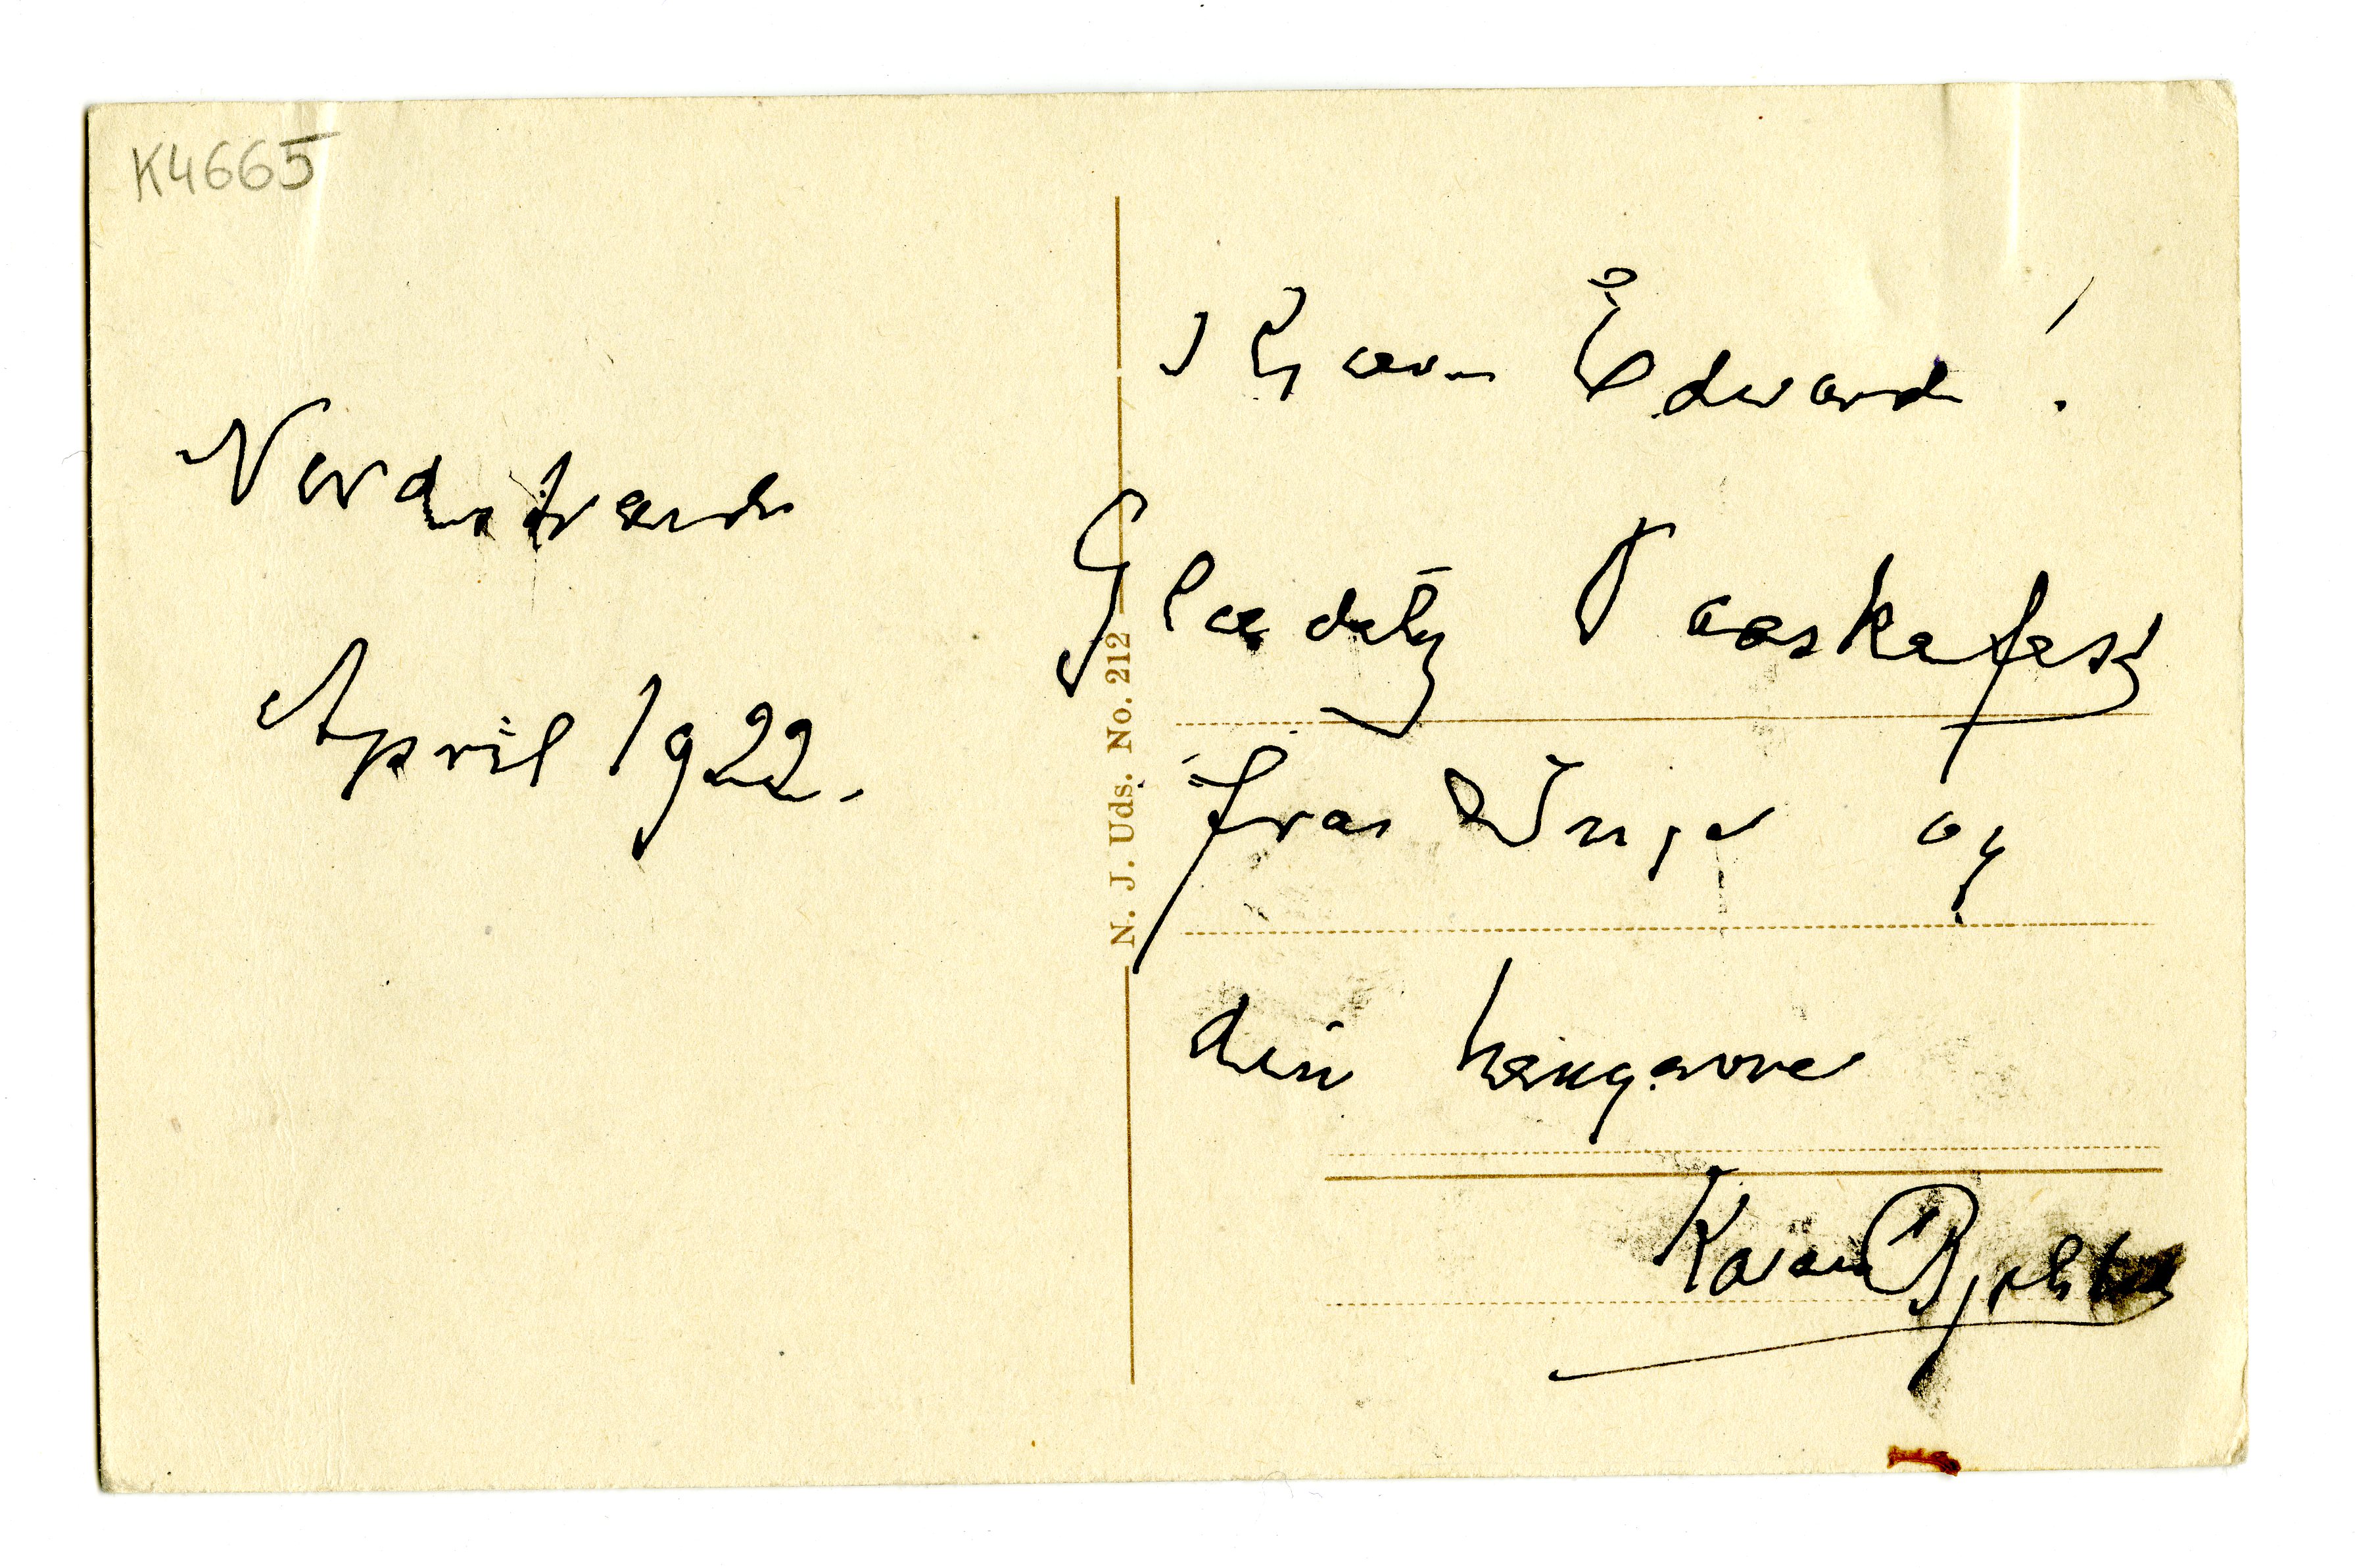 K4665
Nordstrand
April 1922.
N. J. Uds. No. 212
Kjære Edvard!
Glædelig Paaskefest
fra Inga og
din hengivne
Karen